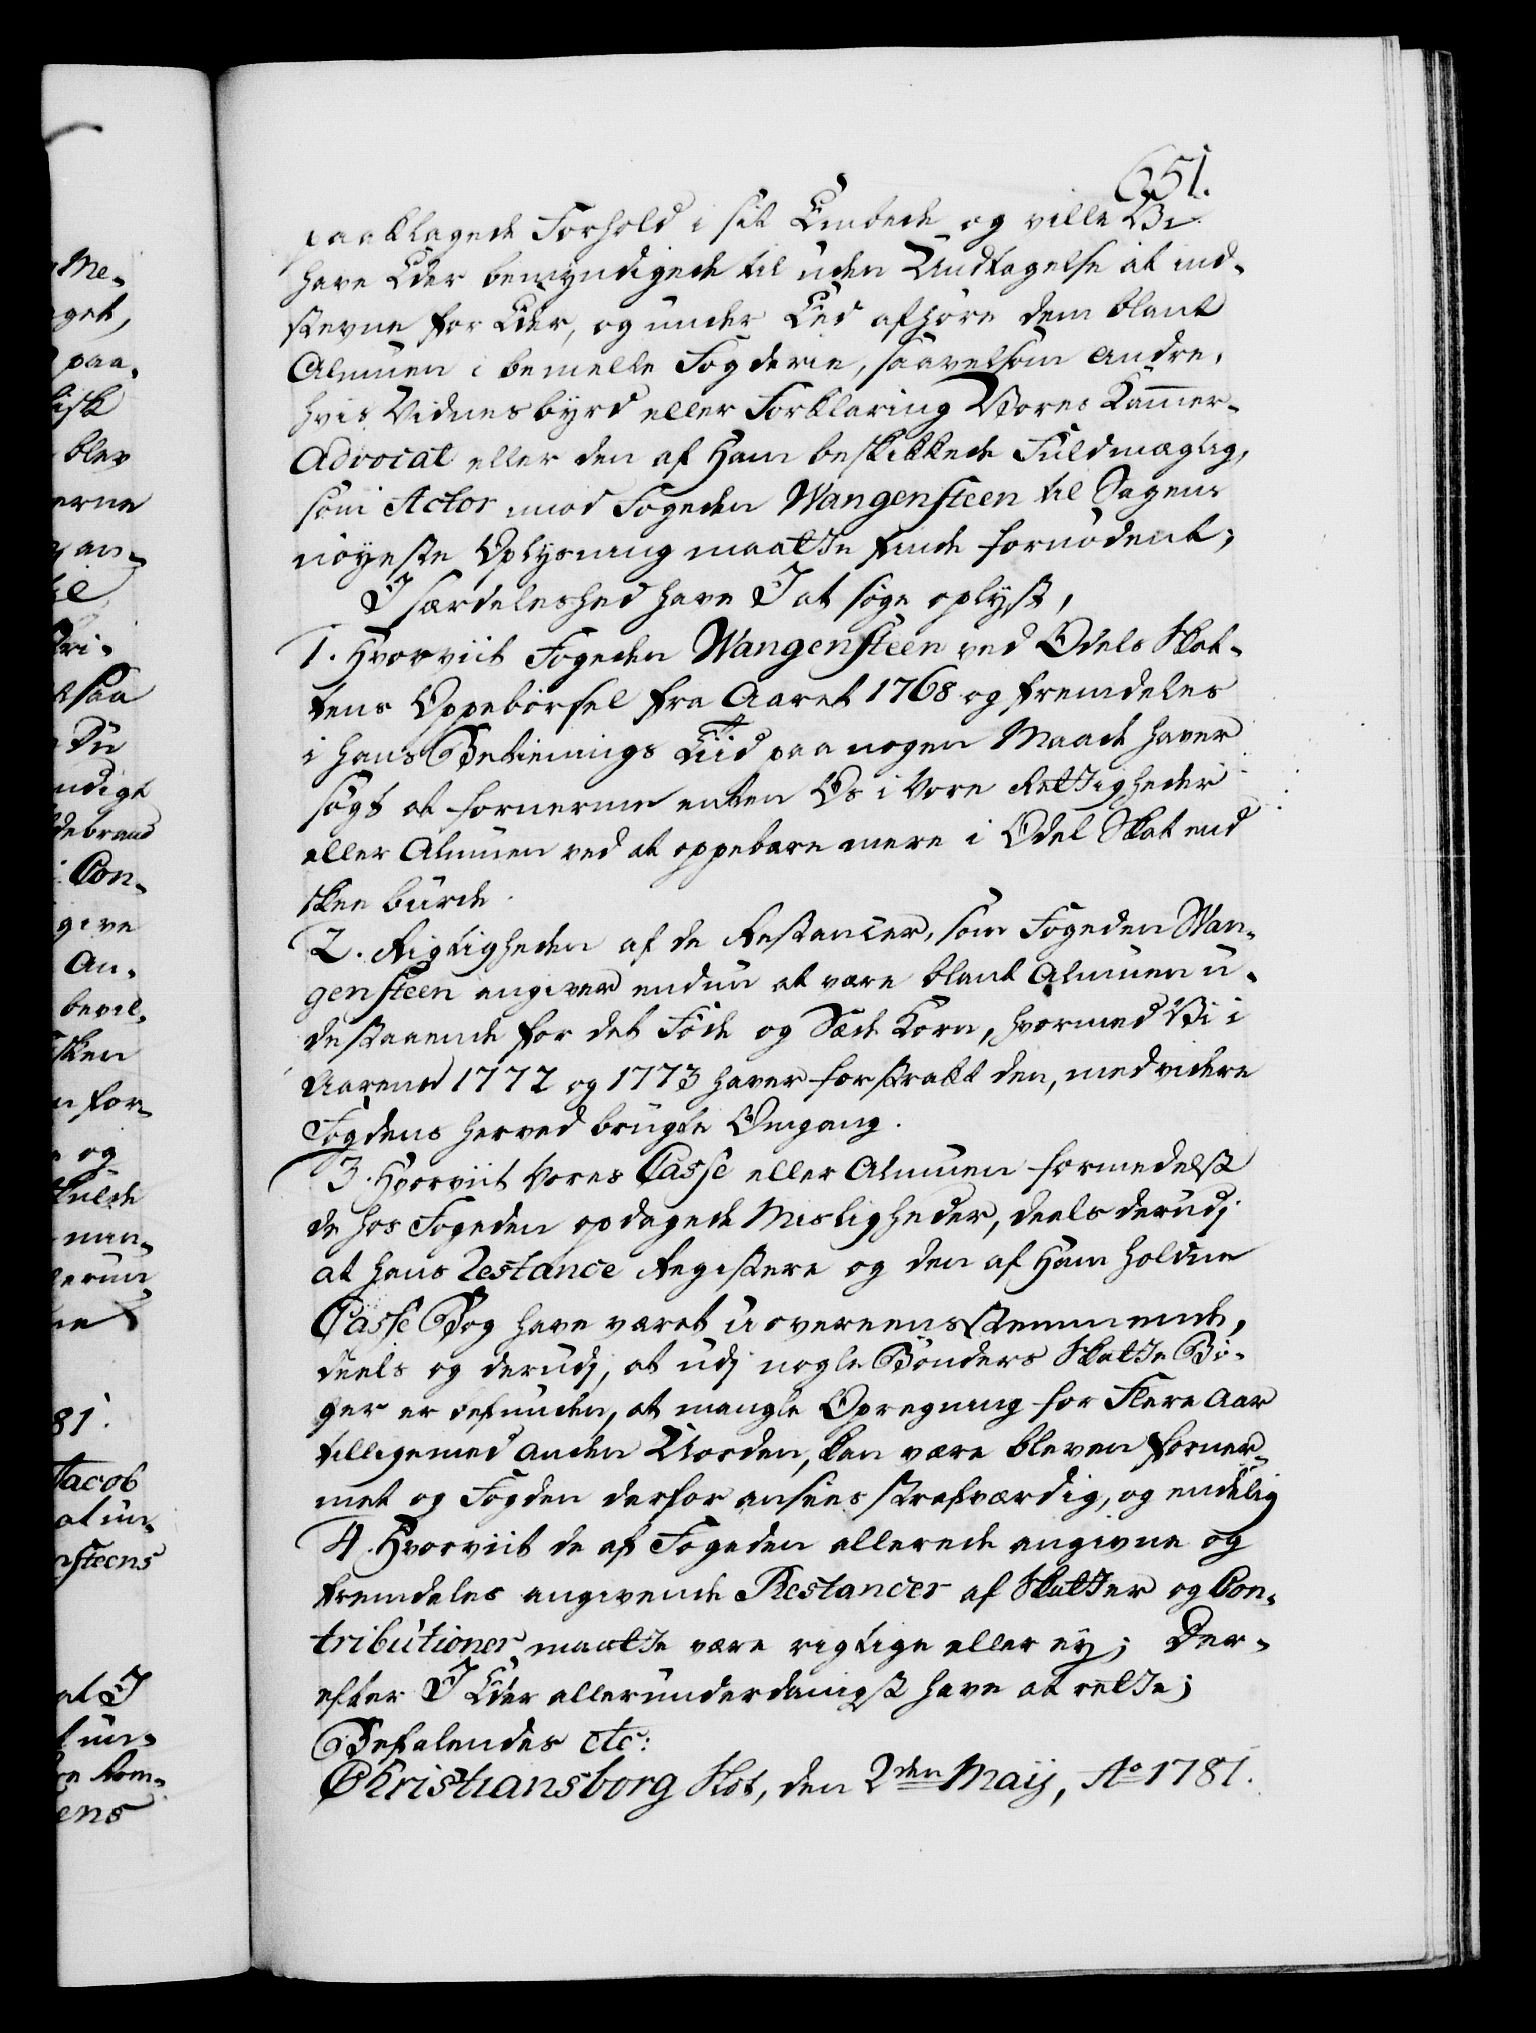 651.
paaklagede Forhold i sit Embede og ville Vi
have Eder bemyndigede til uden Undtagelse at ind-
stevne for Eder, og under Eed afhøre dem blant
Almuen i bemelte Fogderie, saavelsom andre,
hvis Vidnesbyrd eller Forklaring Vores Kammer-
Advocat eller den af Ham beskikkede Fuldmægtig,
som Actor mod Fogeden Wangensteen til Sagens
nøyeste Oplysning maatte finde fornødent;
I særdeleshed have I at søge oplyst,
1. Hvorviit Fogeden Wangensteen ved Odels Skat-
tens Oppebørsel fra Aaret 1768 og fremdeles
i hans Betienings Tiid paa nogen Maade haver
søgt at fornerme enten Os i Vore Rettigheder
eller Almuen ved at oppebære mere i Odel Skat end
skee burde.
2. Rigtigheden af de Restancer, som Fogeden Wan-
gensteen angiver endnu at være blant Almuen u-
destaaende for det Føde og Sæde Korn, hvormed Vi i
Aarene 1772 og 1773 haver forstrakt den, med videre
Fogdens herved brugte Omgang.
3. Hvorviit Vores Casse eller Almuen formedelst
de hos Fogeden opdagede Misligheder, deels derudj
at hans Restance Registere og den af Ham holdne
Casse Bog have været uovereensstemmende,
deels og derudj, at udj nogle Bønders Skatte Bø-
ger er befunden, at mangle Opregning for Flere Aar
tilligemed anden Uorden, kan være bleven forner-
met og Fogden derfor ansees strafværdig, og endelig
4. Hvorviit de af Fogeden allerede angivne og
fremdeles angivende Restancer af Skatter og Con-
tributioner maatte være rigtige eller ey; Der-
efter I Eder allerunderdanigst have at rette;
Befalendes etc:
Christiansborg Slot, den 2den Maij, Ao 1781.